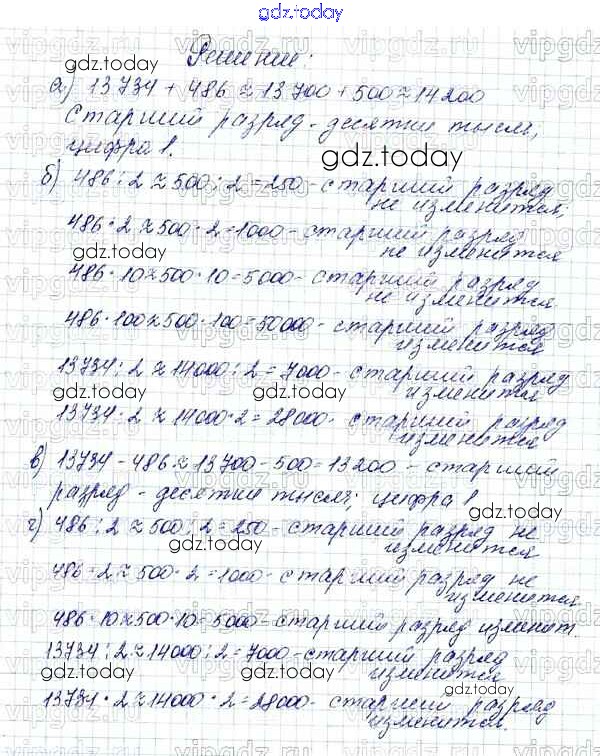 gdz.today
Решение:
а) 13734 + 486 ≈ 13700 + 500 ≈ 14200
Старший разряд - десятки тысяч,
цифра 1.
б) 486 : 2 ≈ 500 : 2 = 250 - старший разряд
не изменится;
486 · 2 ≈ 500 · 2 = 1000 - старший разряд
не изменится
486 · 10 ≈ 500 · 10 = 5000 - старший разряд
не изменится
486 · 100 ≈ 500 · 100 = 50000 - старший разряд
изменится
13734 : 2 ≈ 14000 : 2 = 7000 - старший разряд
изменится
13734 · 2 ≈ 14000 · 2 = 28000 - старший разряд
изменится
в) 13734 - 486 ≈ 13700 - 500 = 13200 - старший
разряд - десятки тысяч; цифра 1
г) 486 : 2 ≈ 500 : 2 = 250 - старший разряд не
изменится
486 · 2 ≈ 500 · 2 = 1000 - старший разряд не
изменится
486 · 10 ≈ 500 · 10 = 5000 - старший разряд изменит.
13734 : 2 ≈ 14000 : 2 = 7000 - старший разряд
изменится
13734 · 2 ≈ 14000 · 2 = 28000 - старший разряд
изменится.